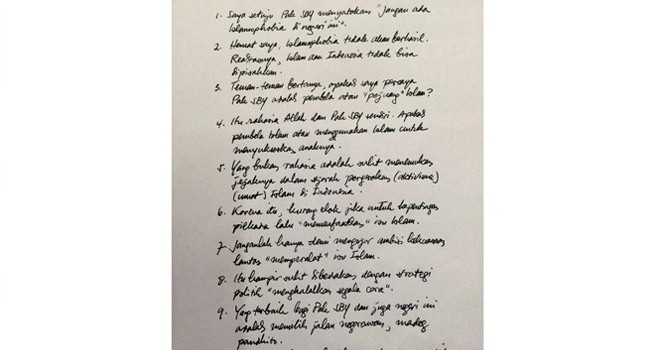 1. Saya setuju Pak SBY menyatakan "jangan ada
Islamophobia di negeri ini".
2. Hemat saya, Islamophobia tidak akan berhasil.
Realitasnya, Islam dan Indonesia tidak bisa
dipisahkan.
3. Teman-teman bertanya, apakah saya percaya
Pak SBY adalah pembela atau "pejuang" Islam?
4. Itu rahasia Allah dan Pak SBY sendiri. Apakah
pembela Islam atau menggunakan Islam untuk
menyukseskan anaknya.
5. Yang bukan rahasia adalah sulit menemukan
jejaknya dalam sejarah pergerakan (aktivisme)
(umat) Islam di Indonesia.
6. Karena itu, kurang elok jika untuk kepentingan
pilkada lalu "memanfaatkan" isu Islam.
7. Janganlah hanya demi mengejar ambisi kekuasaan
lantas "memperalat" isu Islam.
8. Itu hampir sulit dibedakan dengan strategi
politik "menghalalkan segala cara".
9. Yang terbaik bagi Pak SBY dan juga negeri ini
adalah memilih jalan negarawan, madeg
pandhito.